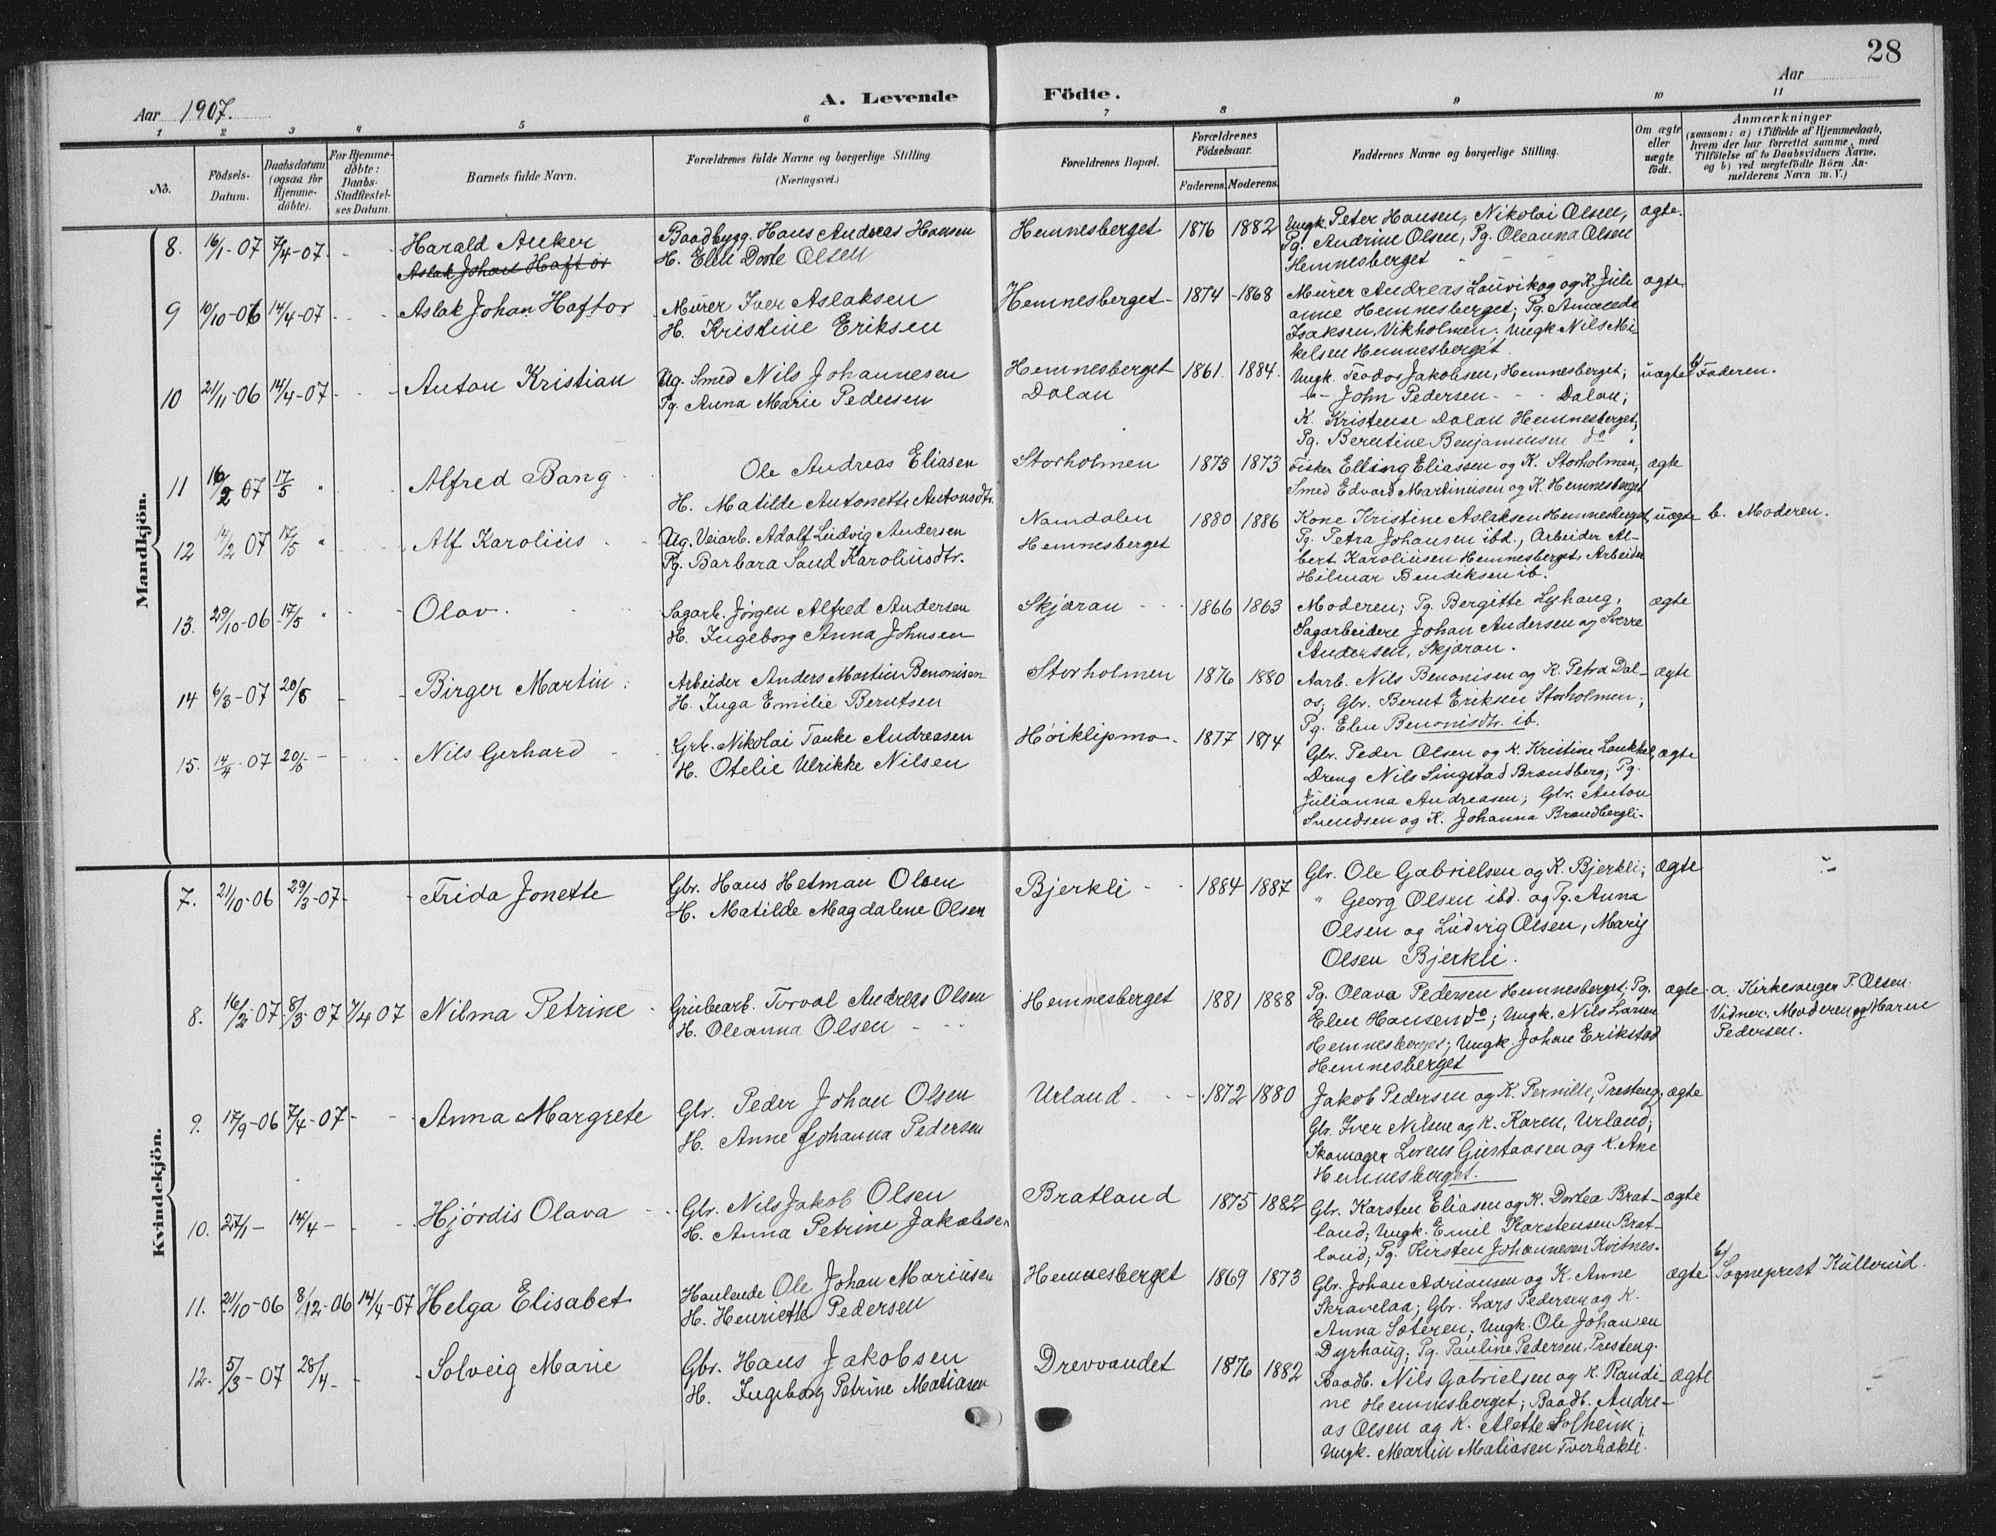 28
Aar 1907.
A. Levende Födte.
Aar
1 2 3 4 5 6 7 8 9 10 11
No.
Födsels-Datum.
Daabsdatum (ogsaa for Hjemme-döbte).
For Hjemme-döbte: Daabs-Stadfæstel-ses Datum.
Barnets fulde Navn.
Forældrenes fulde Navne og borgerlige Stilling. (Næringsvei.)
Forældrenes Bopæl.
Forældrenes Födselsaar.
Faderens. Moderens.
Faddernes Navne og borgerlige Stilling.
Om ægte eller uægte födt.
Anmærkninger
(saasom: a) i Tilfælde af Hjemmedaab, hvem der har forrettet samme, med Tilföielse af to Daabsvidners Navne, og b) ved uægtefödte Börn An-melderens Navn m. V.)
Mandkjön.
8. 16/1-07 7/4-07 Harald Anker Baadbygg. Hans Andreas Hansen Hemnesberget 1876 1882 Ungk. Peter Hansen, Nikolai Olsen, ægte.
Aslak Johan Haftor H. Elen Dorte Olsen Pg. Andrine Olsen, Pg. Oleanna Olsen
Hemnesberget
9 10/10-06 14/4-07 Aslak Johan Haftor Murer Iver Aslaksen Hemnesberget 1874 1868 Murer Andreas Lauvik og K. Juli ægte
H. Kristine Eriksen anne Hemnesberget; Pg. Amanda
Isaksen, Vikholmen; Ungk. Nils Mi-
kelsen Hemnesberget.
10 21/11-06 14/4-07 Anton Kristian Ug. Smed Nils Johannesen Hemnesberget 1861. 1884. Ungk. Teodor Jakobsen, Hemnesberget; uægte b/ Faderen.
Pg. Anna Marie Pedersen Dalan John Pedersen - Dalan;
K. Kristense Dalan Hemnesberget;
Pg. Berntine Benjaminsen do
11 16/2 07 17/5 " Alfred Bang Ole Andreas Eliasen Storholmen 1873 1873 Fisker Elling Eliassen og K. Storholmen, ægte
H. Matilde Antonette Antonsdtr. Smed Edvard Martinusen og K. Hemnesberget
12 14/2 07 17/5 " Alf Karolius Ug. Veiarb. Adolf Ludvig Andersen Namdalen 1880 1886 Kone Kristine Aslaksen Hemnesberget, uægte b. Moderen.
Pg. Barbara Sand Karoliusdtr. Hemnesberget Pg. Petra Johansen ibd., Arbeider Al-
bert Karoliusen Hemnesberget, Arbeider
Hilmar Bendiksen ib.
13. 29/10-06 17/5 " Olav. Sagarb. Jørgen Alfred Andersen Skjæran 1866 1863 Moderen; Pg. Bergitte Lyhaug, ægte
H. Ingeborg Anna Johnsen Sagarbeidere Johan Andersen og Sverre
Andersen, Skjæran.
14 6/3-07 20/5 Birger Martin Arbeider Anders Martin Benonisen Storholmen 1876 1880 Aarb. Nils Benonisen og K. Petra Dal- ægte
H. Inga Emilie Berntsen os; Gbr. Bernt Eriksen Storholmen;
Pg. Elen Benonisdtr. ib.
15. 14/4-07 20/5 Nils Gerhard Grb. Nikolai Tanke Andreasen Høiklipmo 1877 1874 Gbr. Peder Olsen og K. Kristine ægte
H. Otelie Ulrikke Nilsen Dreng Nils Singstad Brandberg; Pg.
Julianna Andreasen; Gbr. Anton
Svendsen og K. Johanna Brandbergli.
Kvindekjön.
7. 21/10-06 29/3-07 Frida Jonette Gbr. Hans Hetman Olsen Bjerkli 1884 1887 Gbr. Ole Gabrielsen og K. Bjerkli; ægte
H. Matilde Magdalene Olsen " Georg Olsen ibd. og Pg. Anna
Olsen og Ludvig Olsen, Marij
Olsen Bjerkli.
8. 16/2-07 8/3-07 7/4 07 Nilma Petrine Grubearb. Torval Andreas Olsen Hemnesberget 1881 1888 Pg. Olava Pedersen Hemnesberget; Pg. ægte a. Kirkesanger P. Olsen.
H. Oleanna Olsen Elen Hansen do; Ungk. Nils Larsen Vidner: Moderen og Maren
Hemnesberget; Ungk. Johan Erikstad Pedersen.
Hemnesberget
9. 17/9-06 7/4-07 Anna Margrete Gbr. Peder Johan Olsen Urland 1872 1880 Jakob Pedersen og K. Pernille, Presteng; ægte
H. Anne Johanna Pedersen Gbr. Iver Nilsen og K. Karen, Urland;
Skomager Lorens Gustavsen og K. Ane
Hemnesberget.
10. 27/1- 14/4- Hjördis Olava Gbr. Nils Jakob Olsen Bratland 1875 1882 Gbr. Karsten Eliasen og K. Dortea Brat- ægte
H. Anna Petrine Jakobsen land; Ungk. Emil Karstensen Brat-
land; Pg. Kirsten Johannesen Kvitnes.
11. 21/10-06 8/12-06 14/4-07 Helga Elisabet Handlende Ole Johan Mariusen Hemnesberget 1869 1873 Gbr. Johan Adriansen og K. Anne ægte b/ Sogneprest Kullerud.
H. Henriette Pedersen Skravelaa; Gbr. Lars Pedersen og K.
Anna Sæteren; Ungk. Ole Johansen
Dyrhaug; Pg. Pauline Pedersen, Presteng.
12. 5/3-07 28/4- Solveig Marie Gbr. Hans Jakobsen Drevvandet 1876 1882 Baadb. Nils Gabrielsen og K. Randi- ægte
H. Ingeborg Petrine Matiasen ne Hemnesberget; Baadb. Andre-
as Olsen og K. Alette Solheim;
Ungk. Martin Matiasen Tverbakli.